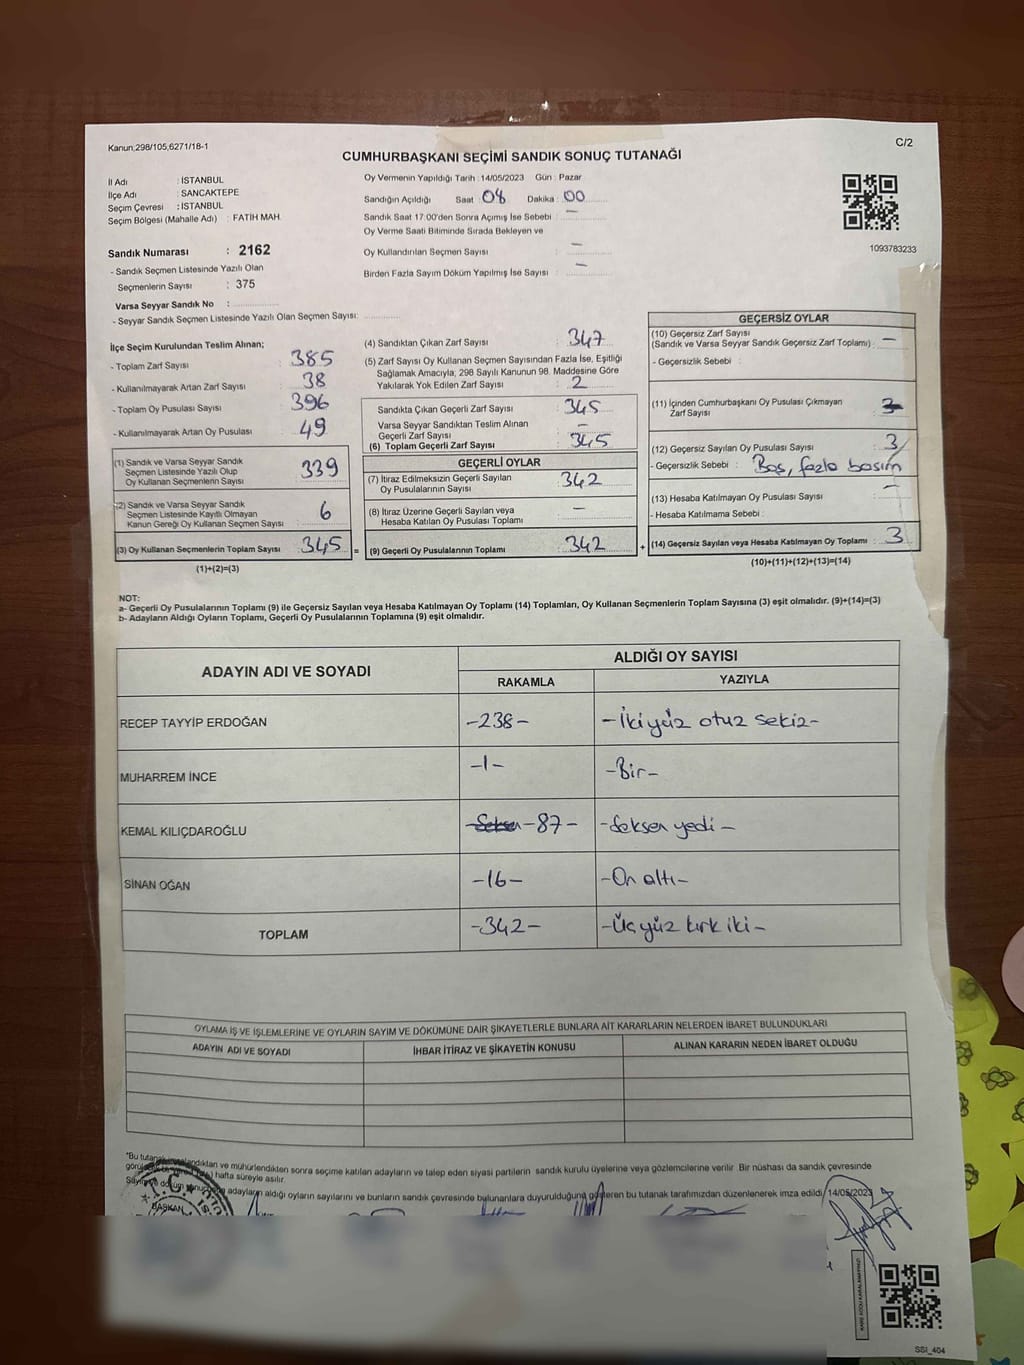 Kanun;298/105,6271/18-1
C/2
CUMHURBAŞKANI SEÇİMİ SANDIK SONUÇ TUTANAĞI
İl Adı : İSTANBUL
İlçe Adı : SANCAKTEPE
Seçim Çevresi : İSTANBUL
Seçim Bölgesi (Mahalle Adı) : FATİH MAH.
Sandık Numarası : 2162
- Sandık Seçmen Listesinde Yazılı Olan
Seçmenlerin Sayısı : 375
Varsa Seyyar Sandık No :
- Seyyar Sandık Seçmen Listesinde Yazılı Olan Seçmen Sayısı:
Oy Vermenin Yapıldığı Tarih : 14/05/2023 Gün : Pazar
Sandığın Açıldığı Saat : 08 Dakika : 00
Sandık Saat 17:00'den Sonra Açımış İse Sebebi : -
Oy Verme Saati Bitiminde Sırada Bekleyen ve
Oy Kullandırılan Seçmen Sayısı : -
Birden Fazla Sayım Döküm Yapılmış İse Sayısı : -
1093783233
İlçe Seçim Kurulundan Teslim Alınan;
- Toplam Zarf Sayısı : 385
- Kullanılmayarak Artan Zarf Sayısı : 38
- Toplam Oy Pusulası Sayısı : 396
- Kullanılmayarak Artan Oy Pusulası : 49
(1) Sandık ve Varsa Seyyar Sandık
Seçmen Listesinde Yazılı Olup
Oy Kullanan Seçmenlerin Sayısı : 339
(2) Sandık ve Varsa Seyyar Sandık
Seçmen Listesinde Kayıtlı Olmayan
Kanun Gereği Oy Kullanan Seçmen Sayısı : 6
(3) Oy Kullanan Seçmenlerin Toplam Sayısı : 345 =
(1)+(2)=(3)
(4) Sandıktan Çıkan Zarf Sayısı : 347
(5) Zarf Sayısı Oy Kullanan Seçmen Sayısından Fazla İse, Eşitliği
Sağlamak Amacıyla; 298 Sayılı Kanunun 98. Maddesine Göre
Yakılarak Yok Edilen Zarf Sayısı : 2
Sandıkta Çıkan Geçerli Zarf Sayısı : 345
Varsa Seyyar Sandıktan Teslim Alınan
Geçerli Zarf Sayısı : -
(6) Toplam Geçerli Zarf Sayısı : 345
GEÇERLİ OYLAR
(7) İtiraz Edilmeksizin Geçerli Sayılan
Oy Pusulalarının Sayısı : 342
(8) İtiraz Üzerine Geçerli Sayılan veya
Hesaba Katılan Oy Pusulası Toplamı : -
(9) Geçerli Oy Pusulalarının Toplamı : 342 +
GEÇERSİZ OYLAR
(10) Geçersiz Zarf Sayısı
(Sandık ve Varsa Seyyar Sandık Geçersiz Zarf Toplamı) : -
- Geçersizlik Sebebi :
(11) İçinden Cumhurbaşkanı Oy Pusulası Çıkmayan
Zarf Sayısı :
(12) Geçersiz Sayılan Oy Pusulası Sayısı : 3
- Geçersizlik Sebebi : Boş, fazla basım
(13) Hesaba Katılmayan Oy Pusulası Sayısı : -
- Hesaba Katılmama Sebebi :
(14) Geçersiz Sayılan veya Hesaba Katılmayan Oy Toplamı : 3
(10)+(11)+(12)+(13)=(14)
NOT:
a- Geçerli Oy Pusulalarının Toplamı (9) ile Geçersiz Sayılan veya Hesaba Katılmayan Oy Toplamı (14) Toplamları, Oy Kullanan Seçmenlerin Toplam Sayısına (3) eşit olmalıdır. (9)+(14)=(3)
b- Adayların Aldığı Oyların Toplamı, Geçerli Oy Pusulalarının Toplamına (9) eşit olmalıdır.
ADAYIN ADI VE SOYADI
ALDIĞI OY SAYISI
RAKAMLA YAZIYLA
RECEP TAYYİP ERDOĞAN -238- -İkiyüz otuz sekiz-
MUHARREM İNCE -1- -Bir-
KEMAL KILIÇDAROĞLU Seksen -87- -Seksen yedi-
SİNAN OĞAN -16- -On altı-
TOPLAM -342- -Üçyüz kırk iki-
OYLAMA İŞ VE İŞLEMLERİNE VE OYLARIN SAYIM VE DÖKÜMÜNE DAİR ŞİKAYETLERLE BUNLARA AİT KARARLARIN NELERDEN İBARET BULUNDUKLARI
ADAYIN ADI VE SOYADI İHBAR İTİRAZ VE ŞİKAYETİN KONUSU ALINAN KARARIN NEDEN İBARET OLDUĞU
*Bu tutanak imzalandıktan ve mühürlendikten sonra seçime katılan adayların ve talep eden siyasi partilerin sandık kurulu üyelerine veya gözlemcilerine verilir. Bir nüshası da sandık çevresinde
hafta süreyle asılır.
adayların aldığı oyların sayılarını ve bunların sandık çevresinde bulunanlara duyurulduğunu gösteren bu tutanak tarafımızdan düzenlenerek imza edildi. 14/05/2023
T.C.
BAŞKAN
SSI_404